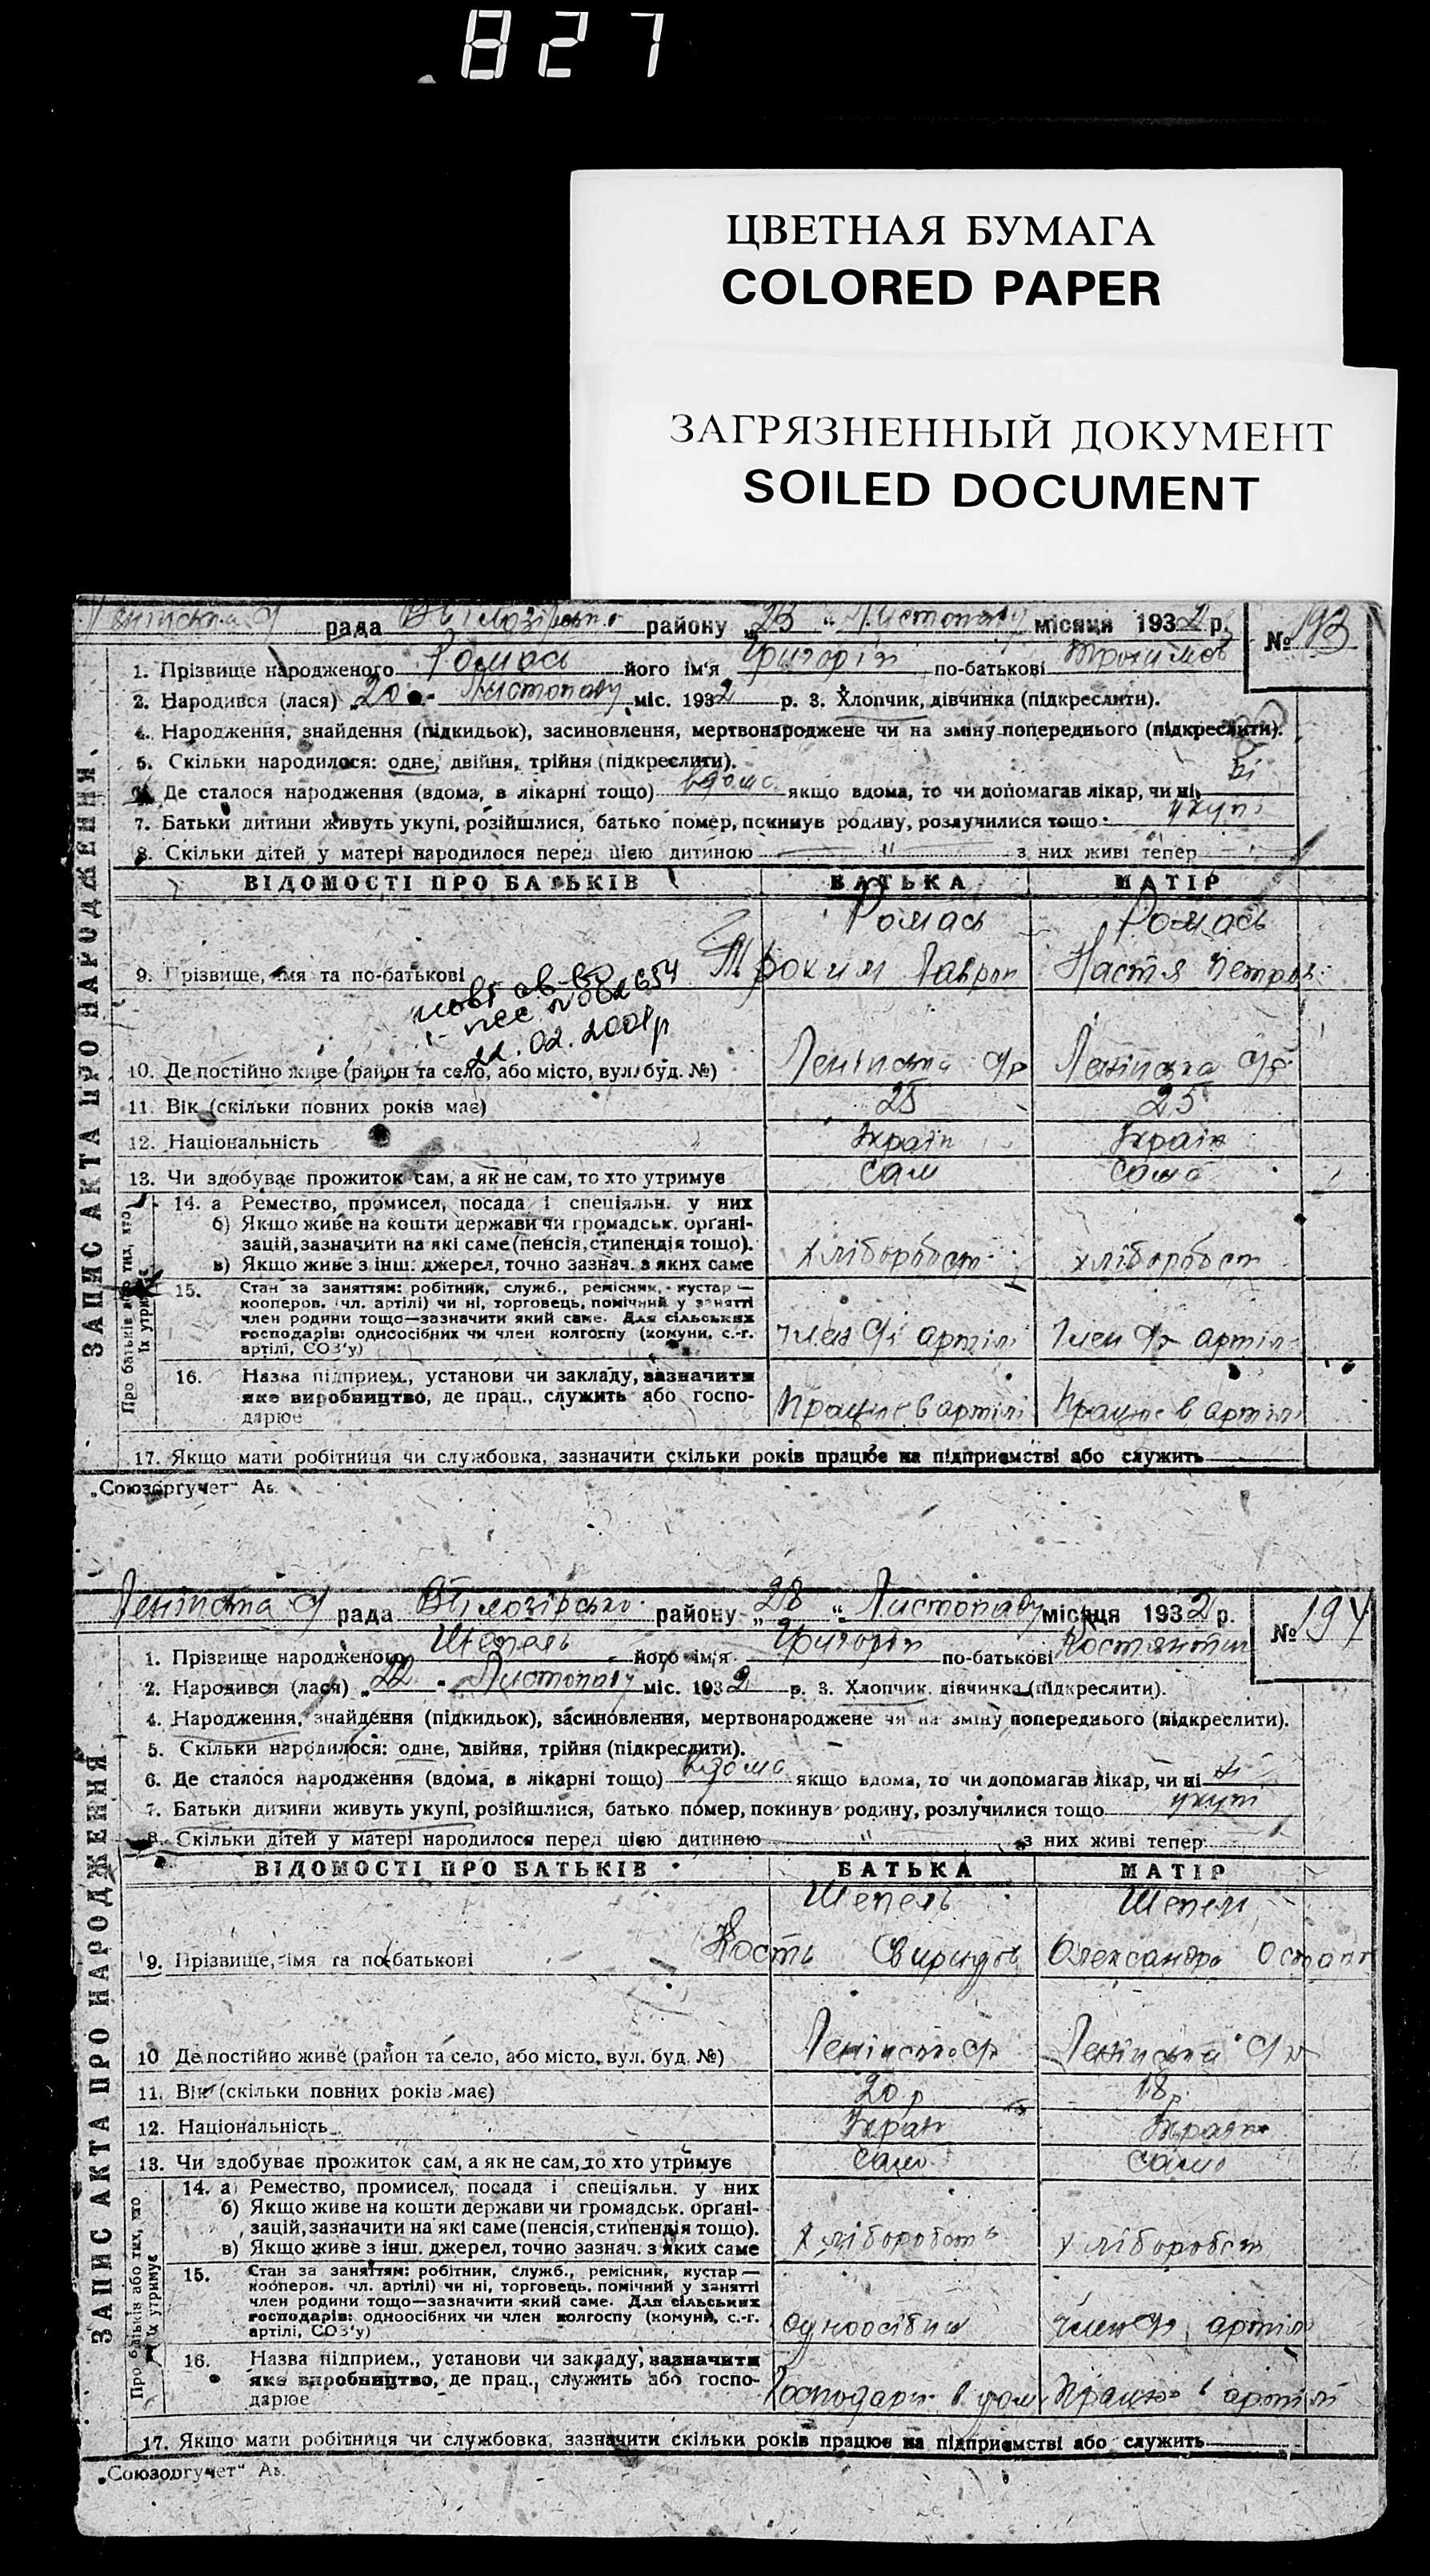 827
ЦВЕТНАЯ БУМАГА
COLORED PAPER
ЗАГРЯЗНЕННЫЙ ДОКУМЕНТ
SOILED DOCUMENT
рада району „23“ Листопаду місяця 1932 р. № 193
1. Прізвище народженого Ромась його ім'я Григорій по-батькові Трохимов
2. Народився (лася) „20 " Листопаду міс. 1932 р. 3. Хлопчик, дівчинка (підкреслити).
4. Народження, знайдення (підкидьок), засиновлення, мертвонароджене чи на зміну попереднього (підкреслити).
5. Скільки народилося: одне, двійня, трійня (підкреслити).
Де сталося народження (вдома, в лікарні тощо) вдома якщо вдома, то чи допомагав лікар, чи ні ні
7. Батьки дитини живуть укупі, розійшлися, батько помер, покинув родину, розлучилися тощо укупі
8. Скільки дітей у матері народилося перед цією дитиною " з них живі тепер
ЗАПИС АКТА ПРО НАРОДЖЕННЯ
ВІДОМОСТІ ПРО БАТЬКІВ БАТЬКА МАТІР
Ромась Ромась
9. Прізвище, імя та по-батькові Трохим Лаврон Настя Петров
22.02.2001р
10. Де постійно живе (район та село, або місто, вул. буд. №) Ленінська с/р Ленінська с/р
11. Вік (скільки повних років має) 25 25
12. Національність Україн Україн
13. Чи здобуває прожиток сам, а як не сам, то хто утримує сам сама
Про батьків або тих, хто їх утримує
14. а Ремество, промисел, посада і спеціяльн. у них
б) Якщо живе на кошти держави чи громадськ. органі-
зацій, зазначити на які саме (пенсія, стипендія тощо).
в) Якщо живе з інш. джерел, точно зазнач. з яких саме хлібороб хлібороб
15. Стан за заняттям: робітник, служб., ремісник, кустар —
кооперов. (чл. артілі) чи ні, торговець, помічний у занятті
член родини тощо—зазначити який саме. Для сільських
господарів: одноосібних чи член колгоспу (комуни, с.-г.
артілі, СОЗ'у) член с/г артілі член с/г артіл
16. Назва підприєм., установи чи закладу, зазначити
яке виробництво, де прац., служить або госпо-
дарює Працює в артілі Працює в артілі
17. Якщо мати робітниця чи службовка, зазначити скільки років працює на підприємстві або служить
„Союзоргучет“
Ленінська с/ рада району „28“ Листопаду місяця 1932 р. № 194
1. Прізвище народженого Шепель його ім'я Григорій по-батькові Костянтин
2. Народився (лася) „22 " Листопаду міс. 1932 р. 3. Хлопчик, дівчинка (підкреслити).
4. Народження, знайдення (підкидьок), засиновлення, мертвонароджене чи на зміну попереднього (підкреслити).
5. Скільки народилося: одне, двійня, трійня (підкреслити).
6. Де сталося народження (вдома, в лікарні тощо) вдома якщо вдома, то чи допомагав лікар, чи ні ні
7. Батьки дитини живуть укупі, розійшлися, батько помер, покинув родину, розлучилися тощо укупі
8. Скільки дітей у матері народилося перед цією дитиною " з них живі тепер
ЗАПИС АКТА ПРО НАРОДЖЕННЯ
ВІДОМОСТІ ПРО БАТЬКІВ БАТЬКА МАТІР
Шепель Шепель
9. Прізвище, імя та по-батькові Кость Свиридов Олександра Остапів
10 Де постійно живе (район та село, або місто, вул. буд. №) Ленінська с/р Ленінська с/р
11. Вік (скільки повних років має) 20 р 18 р
12. Національність Україн Україн
13. Чи здобуває прожиток сам, а як не сам, то хто утримує сам сама
Про батьків або тих, хто їх утримує
14. а) Ремество, промисел, посада і спеціяльн. у них
б) Якщо живе на кошти держави чи громадськ. органі-
зацій, зазначити на які саме (пенсія, стипендія тощо).
в) Якщо живе з інш. джерел, точно зазнач. з яких саме хлібороб хлібороб
15. Стан за заняттям: робітник, служб., ремісник, кустар —
кооперов. (чл. артілі) чи ні, торговець, помічний у занятті
член родини тощо—зазначити який саме. Для сільських
господарів: одноосібних чи член колгоспу (комуни, с.-г.
артілі, СОЗ'у) одноосібник член с/г артілі
16. Назва підприєм., установи чи закладу, зазначити
яке виробництво, де прац., служить або госпо-
дарює Господарює в дома Працює в артілі
17. Якщо мати робітниця чи службовка, зазначити скільки років працює на підприємстві або служить
„Союзоргучет“